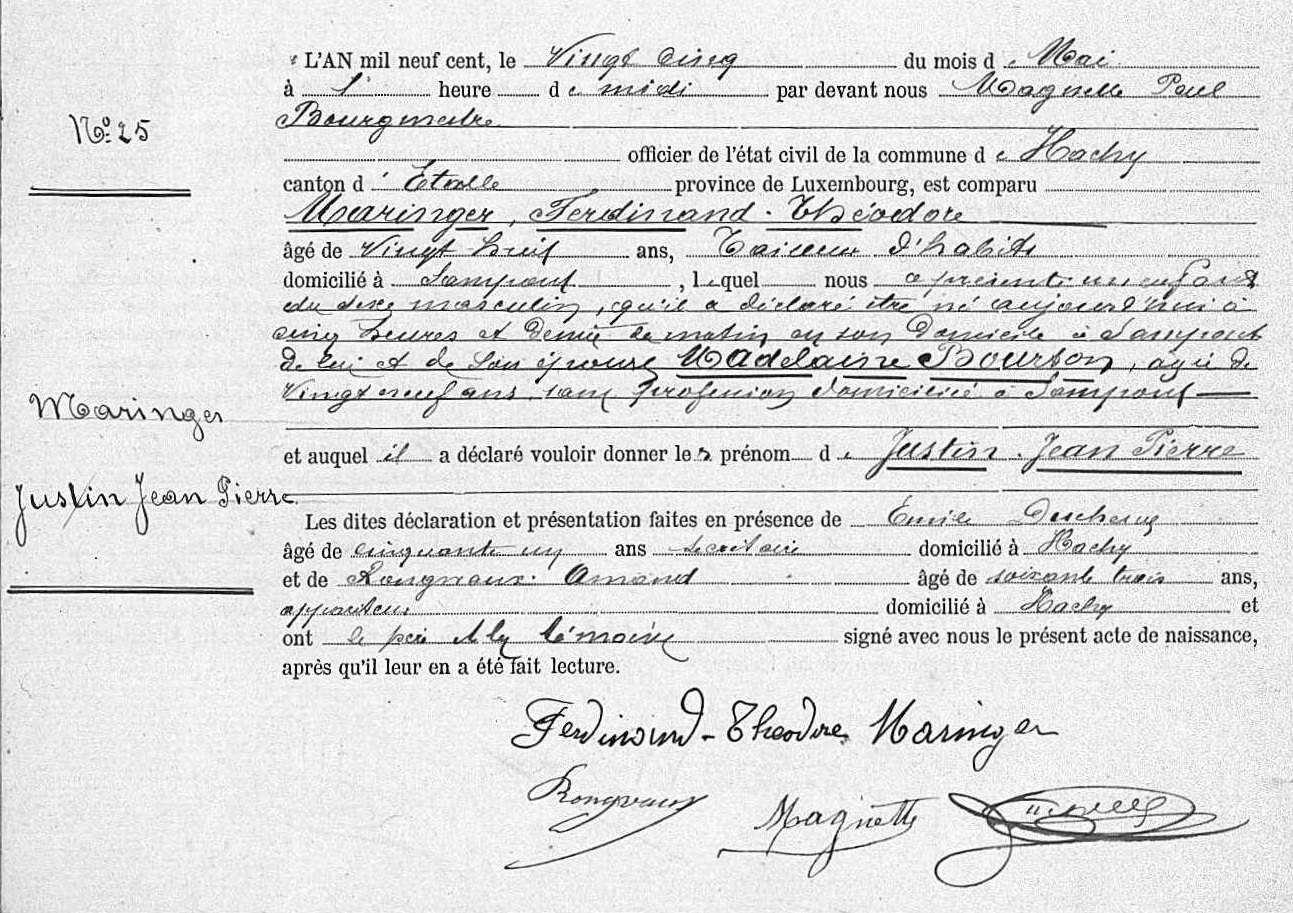 L'AN mil neuf cent, le Vingt cinq du mois de Mai
à 1 heure de midi par devant nous Magnette Paul
Bourgmestre
N° 25
officier de l'état civil de la commune de Hachy
canton d'Etalle province de Luxembourg, est comparu
Maringer, Ferdinand Théodore
âgé de Vingt huit ans, Tailleur d'habits
domicilié à Sampont, lequel nous a présenté un enfant
du sexe masculin, qu'il a déclaré être né aujourd'hui à
cinq heures et demie du matin en son domicile à Sampont
de lui et de son épouse Madelaine Bourson, agée de
Vingt neuf ans, sans profession domiciliée à Sampont
Maringer
et auquel il a déclaré vouloir donner les prénom de Justin Jean Pierre
Justin Jean Pierre
Les dites déclaration et présentation faites en présence de Emile
âgé de cinquante un ans secrétaire domicilié à Hachy
et de Rongvaux Amand âgé de soixante trois ans,
appariteur domicilié à Hachy et
ont le père et les témoins signé avec nous le présent acte de naissance,
après qu'il leur en a été fait lecture.
Ferdinand-Théodore Maringer
Rongvaux
Magnette